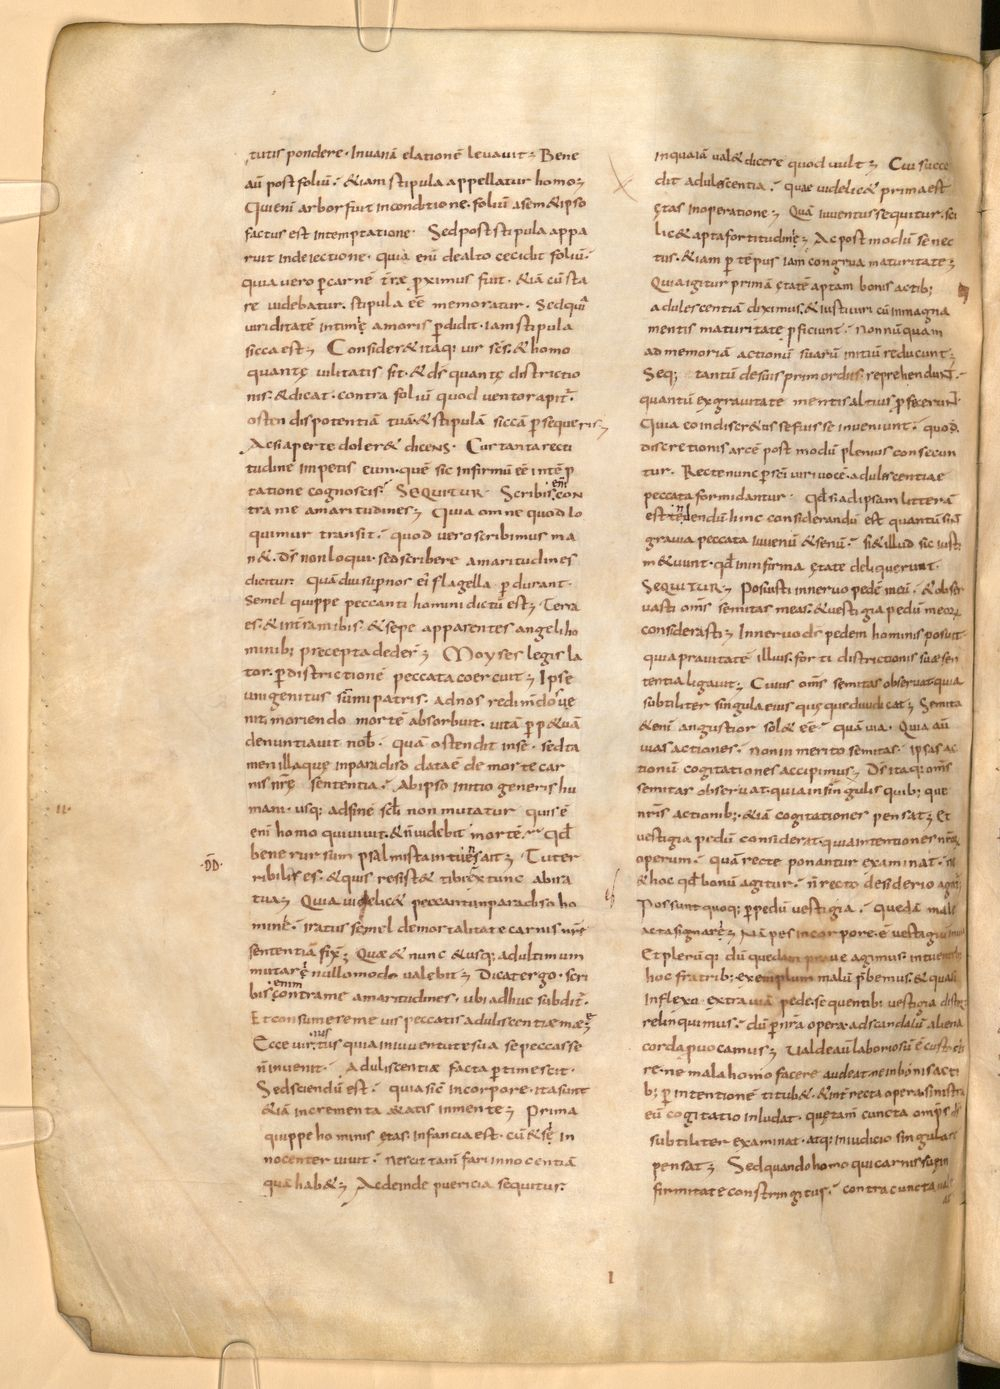 tutis pondere· Inuanā elationē leuauit; Bene
aū post foliū· &iam stipula appellatur homo;
Qui enī arbor fuit inconditione· foliū asem&ipso
factus est intemptatione· Sed post stipula appa
ruit indeiectione· quia enī dealto cecidit foliū·
quia uero p carnē t̄rae pximus fuit· &iā cū sta
re uidebatur· stipula eē memoratur· Sed quia
uiriditatē intimę amoris pdidit· iam stipula
sicca est; Consider& itaq; uir sc̄s· & homo
quantę uilitatis sit· & ds̄ quantę districtio
nis· & dicat· contra foliū quod uento rapit·
ostendis potentiā tuā· & stipulā siccā p sequeris;
Ac si aperte doler& dicens· Cur tanta recti
tudine impetis eum· quē sic infirmū eē in tē p
tatione cognoscis· SEQUITUR· Scribis enī con
tra me amaritudines; Quia omne quod lo
quimur transit· quod uero scribimus ma
n&· Ds̄ non loqui· sed scribere amaritudines
dicitur· quā diu sup nos ei flagella pdurant·
Semel quippe peccanti homini dictū est; Terra
es· & in terram ibis· & sepe apparentes angeli ho
minib; precepta deder̄; Moyses legis la
tor· p districtionē peccata coercuit; Ipse
unigenitus sūmi patris· ad nos redimendos ue
nit· moriendo mortē absorbuit· uitā p p&uā
denuntiauit nob· quā ostendit in se· sed ta
men illa quę in paradiso data ē de morte car
nis nr̄ę sententia· Ab ipso initio generis hu
mani· usq; ad finē sc̄li non mutatur quis ē
enī homo qui uiuit· & n̄ uidebit mortē· qd
bene rursum psalmista intuens ait; Tu ter
ribilis es· & quis resist& tibi ex tunc ab ira
tua; Quia uidelic& peccanti in paradiso ho
mini· iratus semel de mortalitate carnis nr̄ę
sententiā fix̄; Quae & nunc & usq; ad ultimum
mutari nullo modo ualebit; Dicat ergo· scri
bis enim contra me amaritudines· ubi adhuc subdit·
Et consumere me uis peccatis adulescentiae meae;
Ecce uir iustus quia in iuuentute sua se peccasse
n̄ inuenit· adulescentiae facta p timescit·
Sed sciendū est· quia sic in corpore· ita sunt
&iā incrementa aetatis in mente; Prima
quippe hominis ętas infancia est· cū & si in
nocenter uiuit· nescit tam̄ fari innocentiā
quā hab&; Ac deinde puericia sequitur·
inqua iā ual& dicere quod uult; Cui succe
dit adulescentia· quae uidelic& prima est
ętas in operatione; Quā iuuentus sequitur· sci
lic& apta fortitudini; Ac post modū senec
tus· &iam p tēpus iam congrua maturitate;
Quia igitur primā ętatē aptam bonis actib;
adulescentiā diximus· & iusti uiri cū in magna
mentis maturitate pficiunt· non nū quam
ad memoriā actionū suarū initiū reducunt;
Seq; tantū de suis primordiis· reprehendunt·
quantū ex grauitate mentis altius p fecerunt·
Quia eo indiscr&os se fuisse inueniunt· quo
discretionis arcē post modū plenius consecun
tur· Recte nunc p sc̄i uiri uocē· adulescentiae
peccata formidantur· qd si ad ipsam litterā
est tenendū hinc considerandū est quantū sint
grauia peccata iuuenū & senū· si & illud sic iusti
m&uunt· qd in infirma ętate deliquerunt·
SEQUITUR; Posuisti in neruo pedē meū· & obser
uasti om̄s semitas meas· & uestigia pedū meorum
considerasti; In neruo ds̄ pedem hominis posuit·
quia prauitatē illius· forti districtionis suae sen
tentia ligauit; Cuius om̄s semitas obseruat· quia
subtiliter singula eius quęque diiudicat; Semita
&enī angustior sol& eē· quā uia· Quia aū
uias actiones· non in merito semitas· ipsas ac
tionū cogitationes accipimus; Ds̄ itaq; om̄s
semitas obseruat· quia in singulis quib; que
nr̄is actionib; &iā cogitationes pensat; Et
uestigia pedū considerat· quia intentiones nr̄orum
operum· quā recte ponantur examinat· ne
& hoc qd bonū agitur· n̄ recto desiderio agatur;
Possunt quoq; p pedū uestigia· quedā male
acta signari; Nā pes in corpore· ē uestigium
Et plerūq; dū quedam praue agimus· intuentib;
hoc fratrib; exemplum malū pbemus· & quasi
inflexo extra uiā pede· sequentib; uestigia distorta
relinquimus· dū p nr̄a opera· ad scandalū aliena
corda puocamus; Ualde aū laboriosū ē custodi
re· ne mala homo facere audeat· ne in bonis acti
b; p intentionē titub&· & int̄ recta opera sinistra
eū cogitatio inludat· quę tam̄ cuncta omps ds̄
subtiliter examinat· atq; in iudicio singula
pensat; Sed quando homo qui carnis suę in
firmitate constringitur· contra cuncta
I